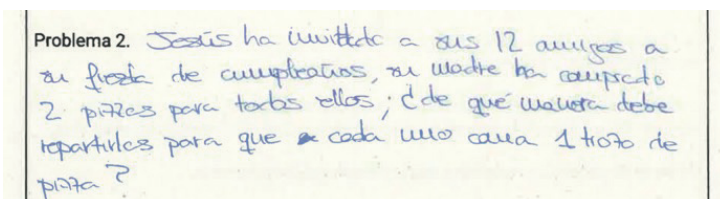 Problema 2. Jesús ha invitado a sus 12 amigos a
su fiesta de cumpleaños, su madre ha comprado
2 pizzas para todos ellos; ¿de qué manera debe
repartirlas para que cada uno coma 1 trozo de
pizza?